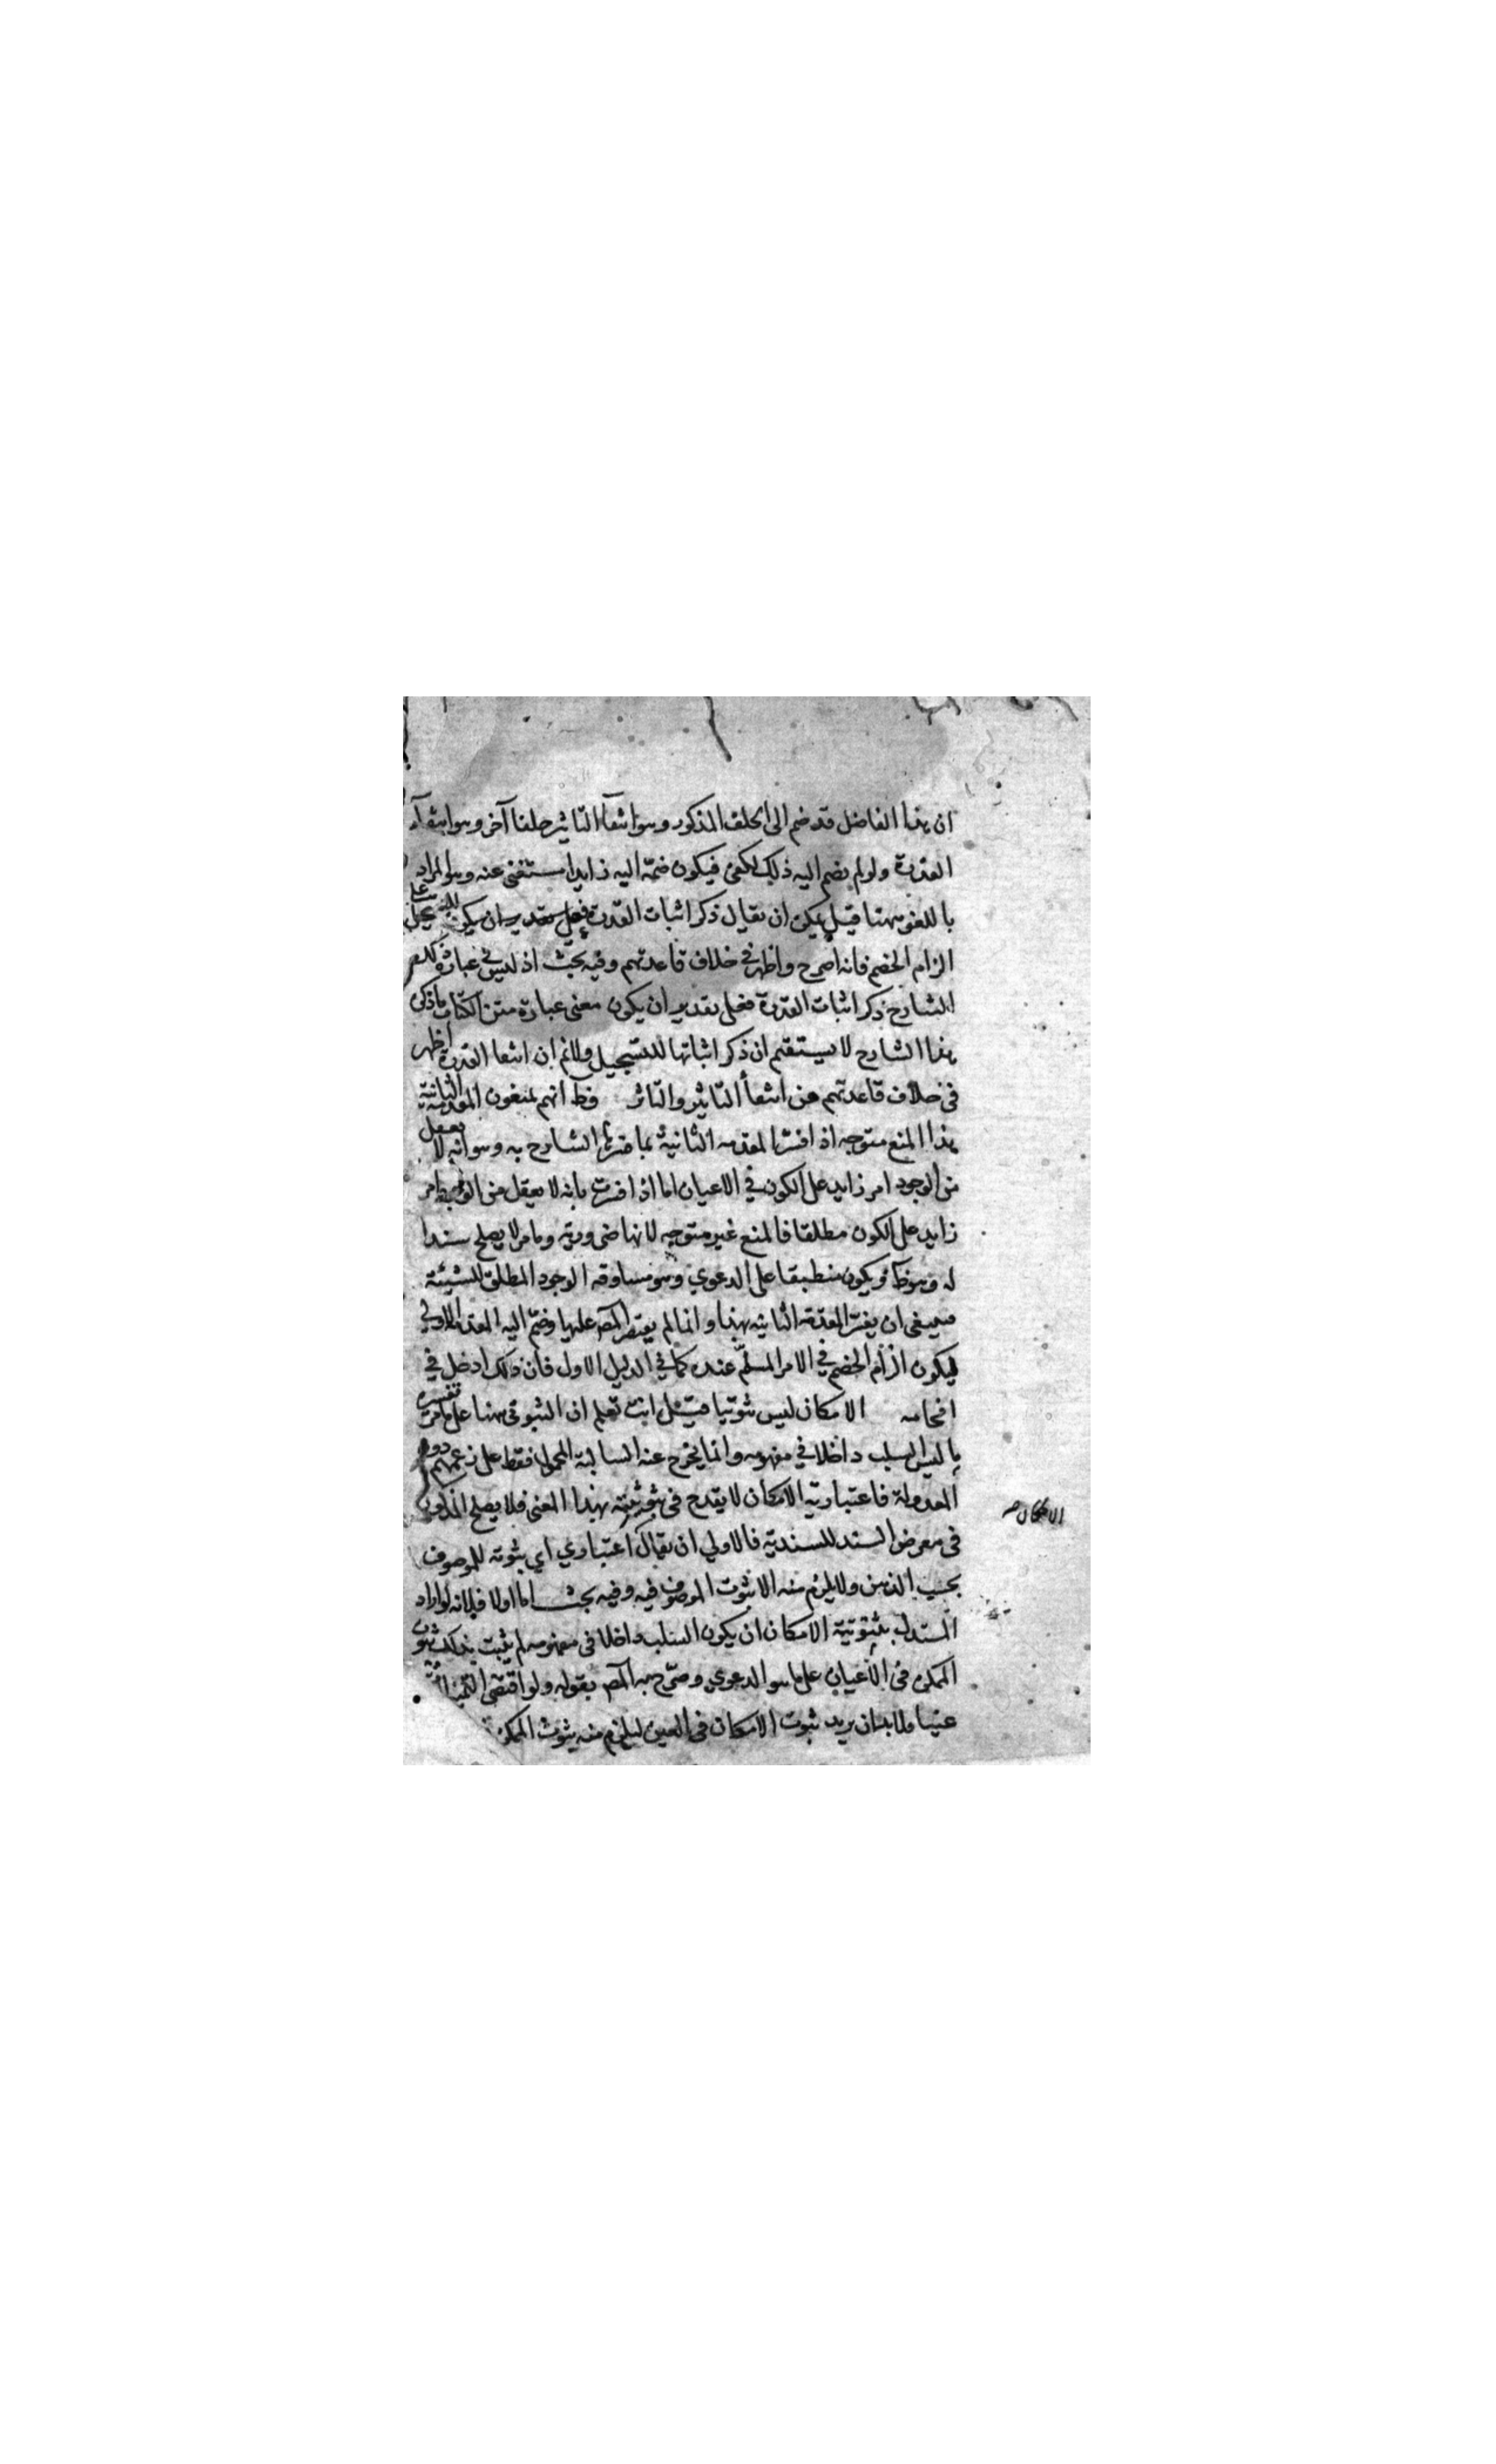 ان هذا الفاضل قد ضم الى الخلف المذكور وهو انتفاء التاثير خلفا آخر وهو انتفاء
القدرة ولو لم يضم اليه ذلك لكفى فيكون ضمه اليه زايدا مستغنى عنه وهو المراد
باللغو ههنا قيل يمكن ان يقال ذكر اثبات القدرة للتسجيل على
الزام الخصم فانه اصرح واظهر في خلاف قاعدتهم وفيه بحث اذ ليس في عبارة
الشارح ذكر اثبات القدرة فعلى تقدير ان يكون معنى عبارة متن الكتاب ما ذكره
هذا الشارح لا يستقيم ان ذكر اثباتها للتسجيل ولانم ان انتفا القدرة اظهر
في خلاف قاعدتهم من انتفأ التاثير والتاثر فظ انهم يمنعون المقدمة الثانية
هذا المنع متوجه اذا فسر المقدمه الثانية بما فسرها الشارح به وهو انه لا يعقل
من الوجود امر زايد على الكون في الاعيان اما اذا فسرت بانه لا يعقل من الوجود امر
زايد على الكون مطلقا فالمنع غير متوجه لانها ضرورية وما مر لا يصلح سندا
له وهو ظ ويكون منطبقا على الدعوي وهو مساوقه الوجود المطلق للشيئة
فينبغى ان يفسر المقدمه الثانيه بهذا وانما لم يقتصر المص عليها وضم اليه المقدمه الاولي
ليكون الزام الخصم في الامر المسلم عنده كما في الدليل الاول فان ذلك ادخل في
افحامه الامكان ليس ثبوتيا قيل انت تعلم ان الثبوتى ههنا على ما مر تفسيره
ما ليس السلب داخلا في مفهومه وانما يخرج عنه السالبة المحمول فقط على زعمهم دون
المعدولة فاعتبارية الامكان لا يقدح في ثبوتيته بهذا المعنى فلا يصلح المذكور
في معرض السند للسندية فالاولي ان يقال الامكان اعتباري اي ثبوته للموصوف
بحسب الذهن ولا يلزم منه الا ثبوت الموصوف فيه وفيه بحث اما اولا فلانه لو اراد
المستدل بثبوتية الامكان ان يكون السلب داخلا في مفهومه لم يثبت بذلك ثبوت
الممكن في الاعيان على ما هو الدعوي وصرح به المص بقوله ولو اقتضى التميز
عينا فلا بد ان يريد ثبوت الامكان في العين ليلزم منه ثبوت الممكن